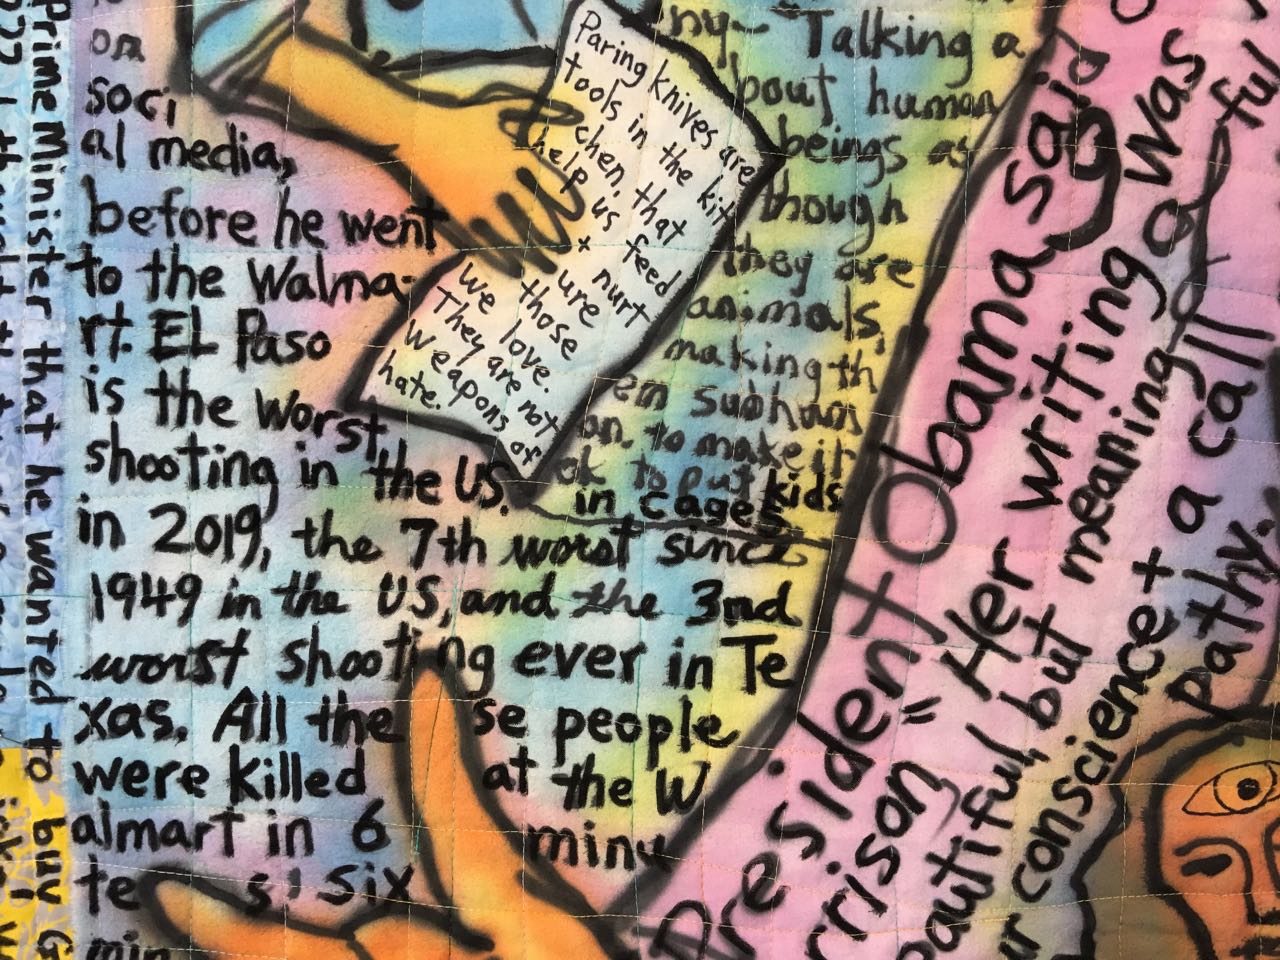 Prime Minister that he wanted to buy G
on
soci
al media,
before he went
to the Walma-
rt. EL Paso
is the worst
shooting in the US.
in 2019, the 7th worst since
1949 in the US, and the 3rd
worst shooting ever in Te
xas. All the se people
were killed at the W
almart in 6 minu
te s! Six
min
Paring knives are
tools in the kit
chen, that
help us feed
+ nurt
ure
those
we love.
They are not
weapons of
hate.
ny- Talking a
bout human
beings as
though
they are
animals,
making th
em subhum
an. to make it
ok to put kids
in cages
President Obama said
rrison "Her writing was
eautiful, but meaningful
ur conscience + a call
pathy.